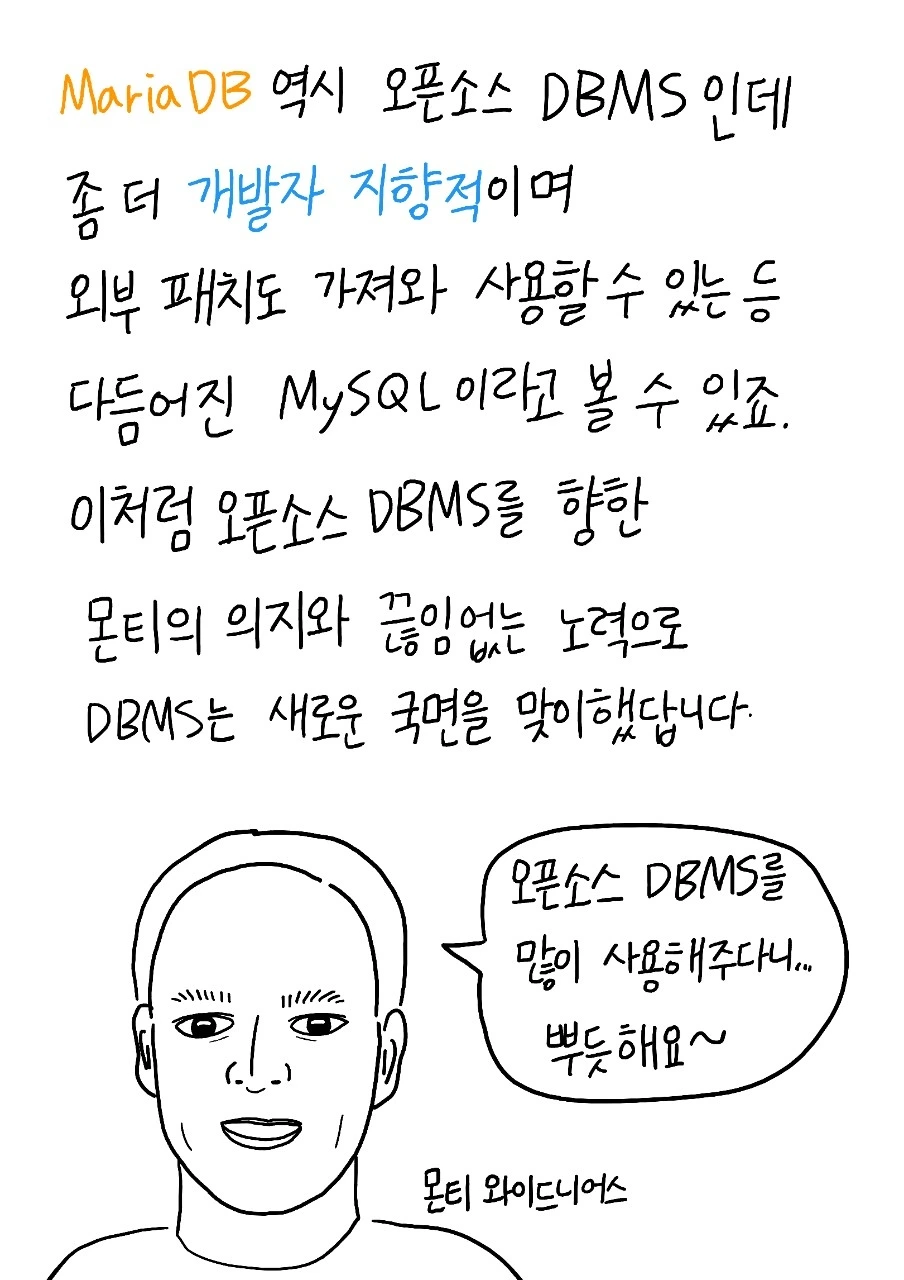 MariaDB 역시 오픈소스 DBMS인데
좀 더 개발자 지향적이며
외부 패치도 가져와 사용할 수 있는 등
다듬어진 MySQL이라고 볼 수 있죠.
이처럼 오픈소스 DBMS를 향한
몬티의 의지와 끊임없는 노력으로
DBMS는 새로운 국면을 맞이했답니다.
오픈소스 DBMS를
많이 사용해주다니...
뿌듯해요~
몬티 와이드니어스